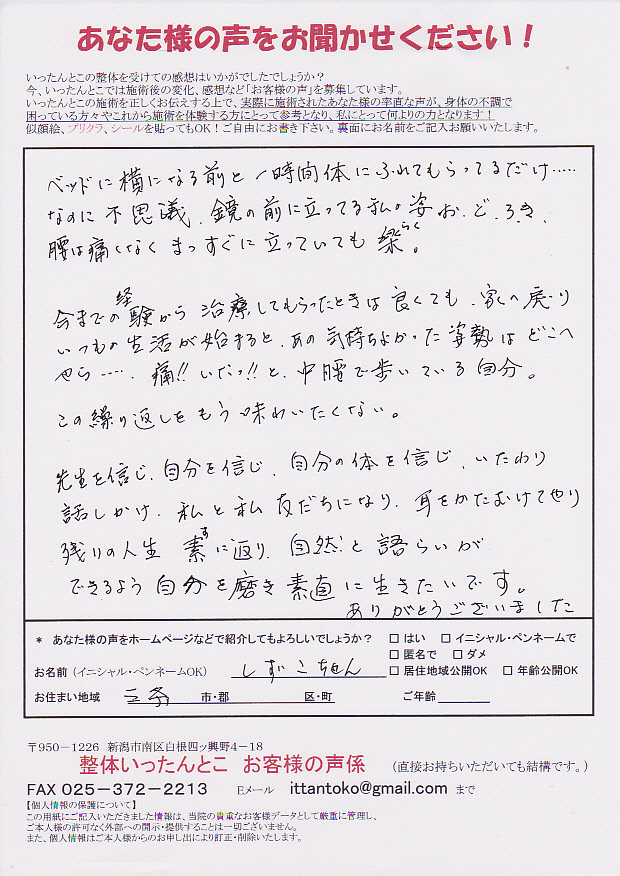 あなた様の声をお聞かせください！
いったんとこの整体を受けての感想はいかがでしたでしょうか？
今、いったんとこでは施術後の変化、感想など「お客様の声」を募集しています。
いったんとこの施術を正しくお伝えする上で、実際に施術されたあなた様の率直な声が、身体の不調で
困っている方々やこれから施術を体験する方にとって参考となり、私にとって何よりの力となります！
似顔絵、プリクラ、シールを貼ってもOK！ご自由にお書き下さい。裏面にお名前をご記入お願いいたします。
ベッドに横になる前と一時間体にふれてもらってるだけ……
なのに不思議、鏡の前に立ってる私の姿お.ど.ろき、
腰は痛くなくまっすぐに立っていても楽。
らく
今までの経験から治療してもらったときは良くても、家へ戻り
いつもの生活が始まると、あの気持ちよかった姿勢はどこへ
やら……、痛!!いたっ!!と、中腰で歩いている自分。
この繰り返しをもう味わいたくない。
先生を信じ、自分を信じ、自分の体を信じ、いたわり
話しかけ、私と私友だちになり、耳をかたむけてやり
残りの人生素に返り、自然と語らいが
す
できるよう自分を磨き素直に生きたいです。
ありがとうございました
* あなた様の声をホームページなどで紹介してもよろしいでしょうか？ □ はい □ イニシャル・ペンネームで
□ 匿名で □ ダメ
お名前（イニシャル・ペンネームOK） しずこちゃん □ 居住地域公開OK □ 年齢公開OK
お住まい地域 三条 市・郡 区・町 ご年齢
〒950－1226 新潟市南区白根四ッ興野4－18
整体いったんとこ お客様の声係 （直接お持ちいただいても結構です。）
FAX 025－372－2213 Eメール ittantoko@gmail.com まで
【個人情報の保護について】
この用紙にご記入いただきました情報は、当院の貴重なお客様データとして厳重に管理し、
ご本人様の許可なく外部への開示・提供することは一切ございません。
また、個人情報はご本人様からのお申し出により訂正・削除いたします。